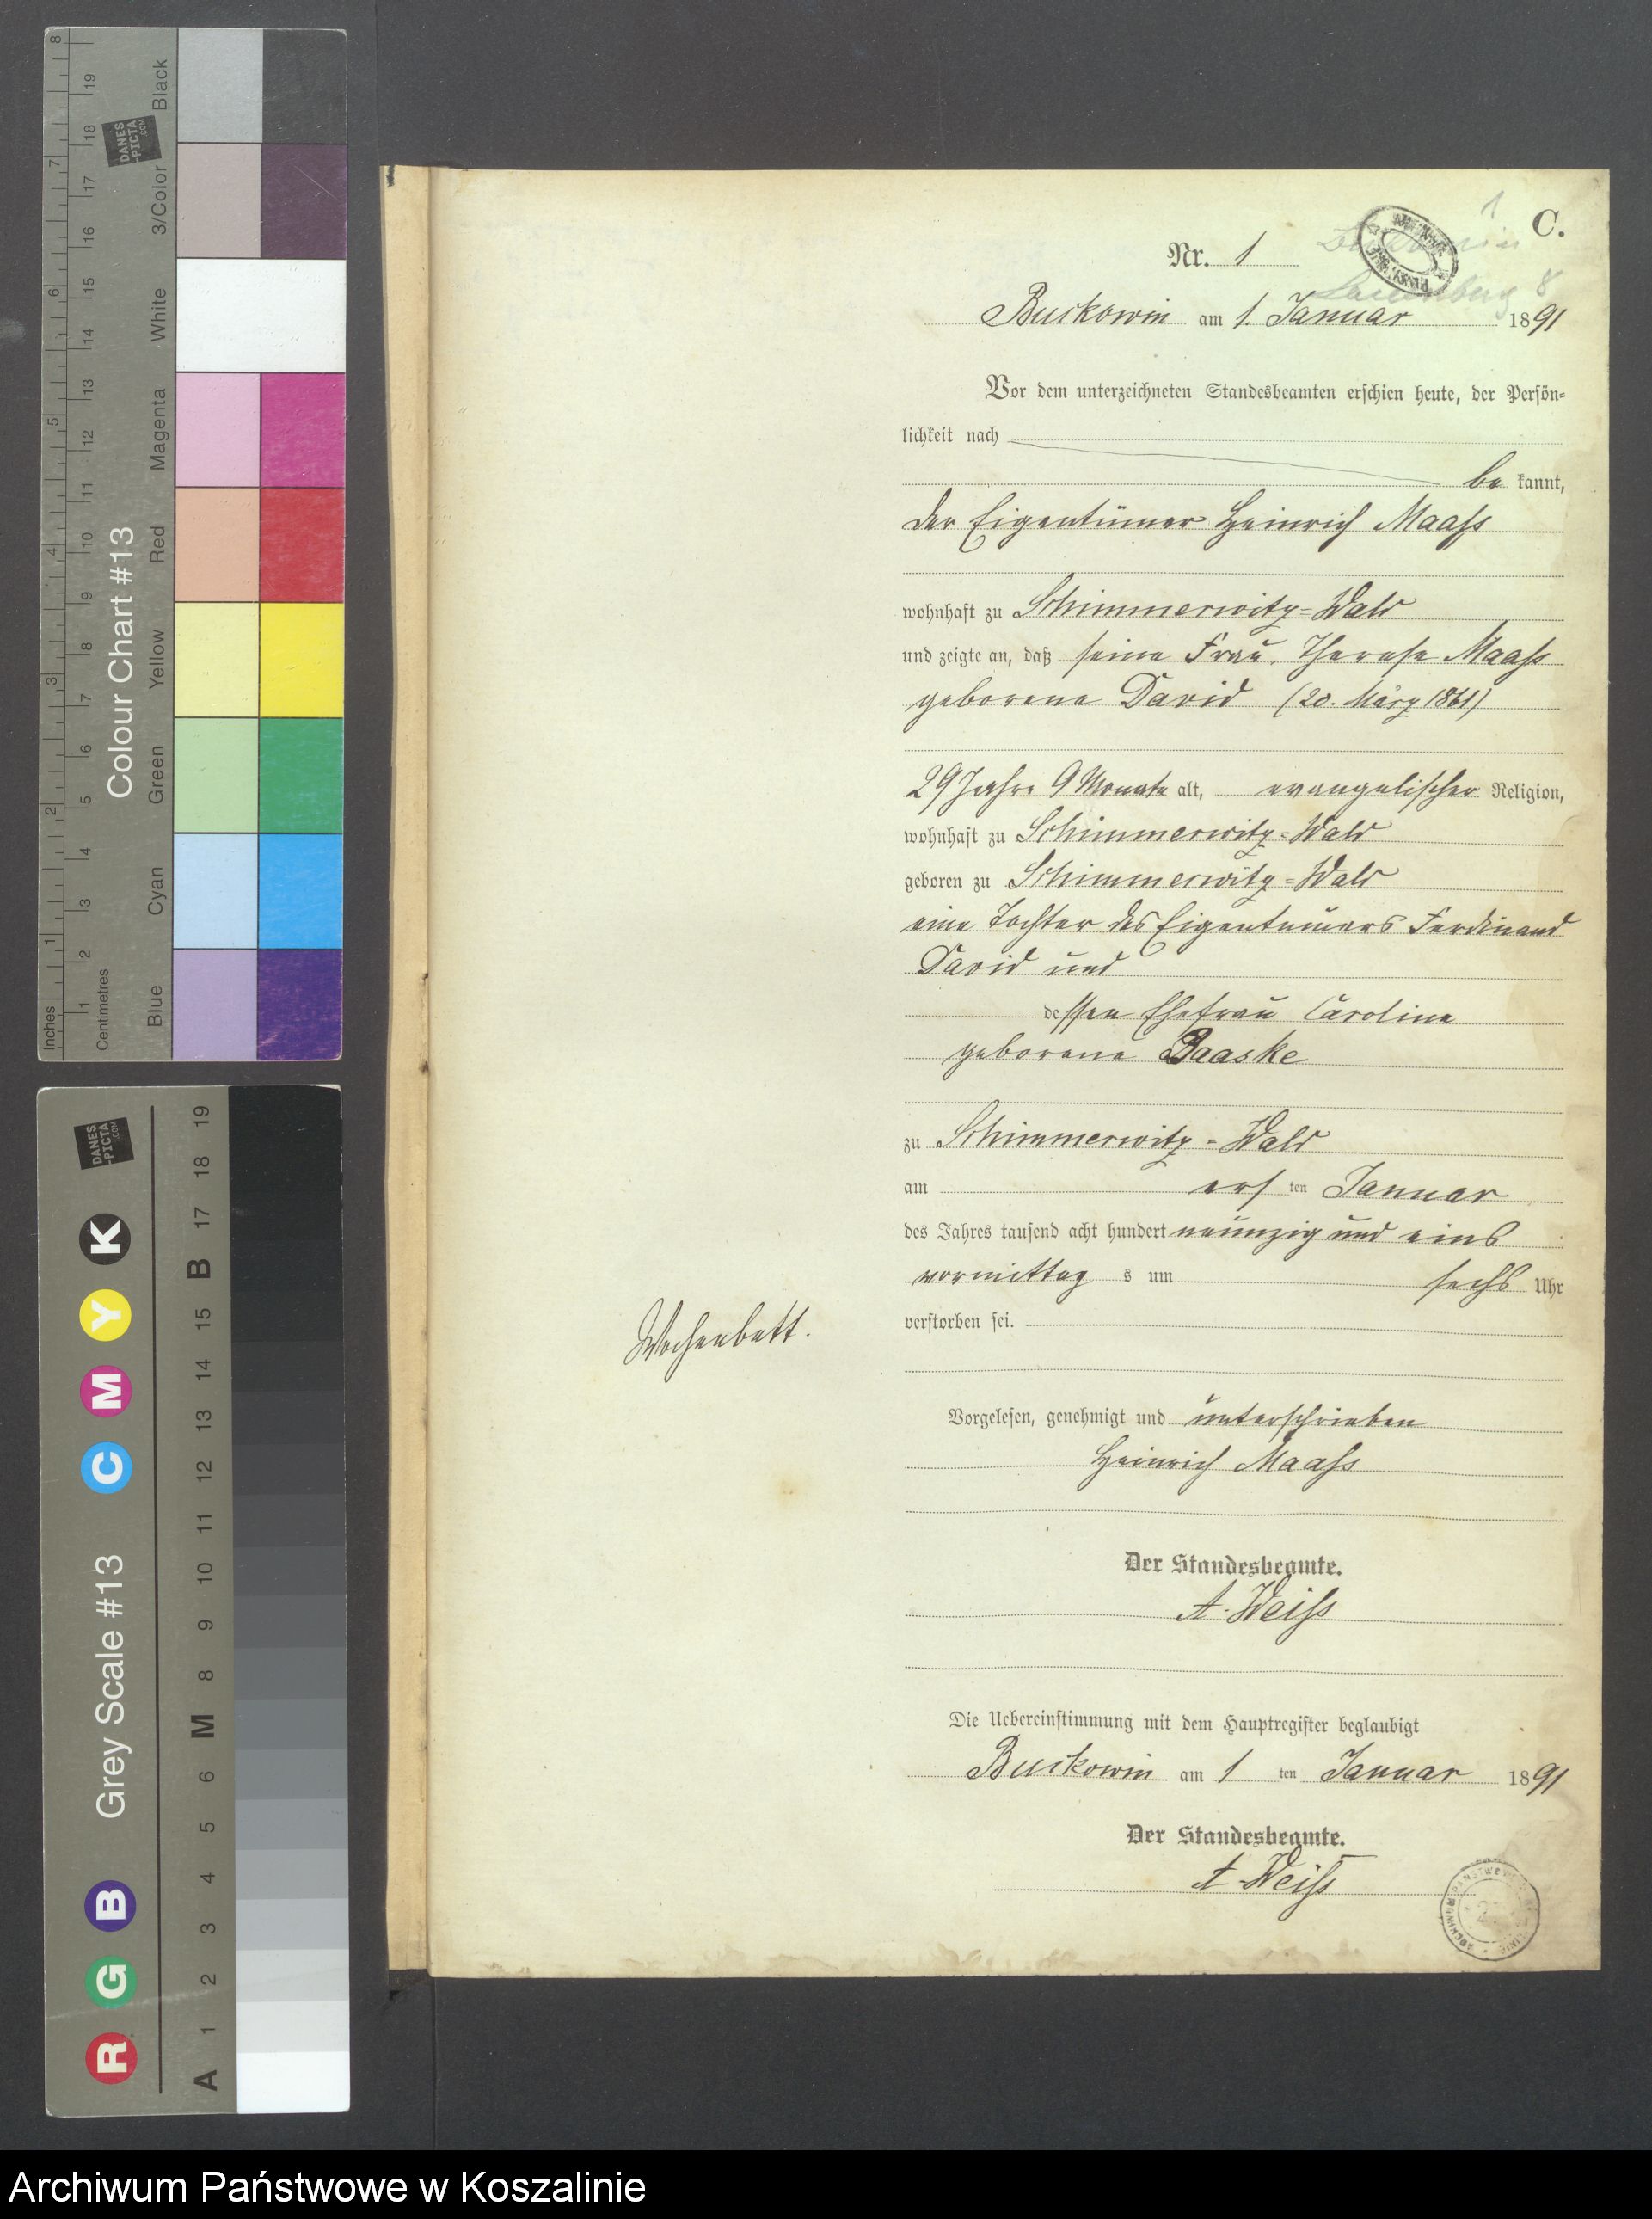 8 19 18 7 17 16 6 15 14 5 13 12 11 4 10 9 3 8 7 6 2 5 4 1 3 2 1
Inches
Centimetres
Colour Chart #13
DANES
-PICTA
.COM
Black
3/Color
White
Magenta
Red
Yellow
Green
Cyan
Blue
DANES
-PICTA
.COM
Grey Scale #13
R G B C M Y K
A 1 2 3 4 5 6 M 8 9 10 11 12 13 14 15 B 17 18 19
1
C.
Nr. 1
Lauenburg 8
Buckowin am 1. Januar 1891
Vor dem unterzeichneten Standesbeamten erschien heute, der Persön-
lichkeit nach
be kannt,
der Eigentümer Heinrich Maaß
wohnhaft zu Schimmerwitz-Wald
und zeigte an, daß seine Frau, Therese Maaß
geborene David (20. März 1861)
29 Jahre 9 Monate alt, evangelischer Religion,
wohnhaft zu Schimmerwitz-Wald
geboren zu Schimmerwitz-Wald
eine Tochter des Eigentümers Ferdinand
David und
dessen Ehefrau Caroline
geborene Baaske
zu Schimmerwitz-Wald
am ersten Januar
des Jahres tausend acht hundert neunzig und eins
vormittag s um sechs Uhr
verstorben sei.
Wochenbett.
Vorgelesen, genehmigt und unterschrieben
Heinrich Maaß
Der Standesbeamte.
A. Weiß
Die Uebereinstimmung mit dem Hauptregister beglaubigt
Buckowin am 1 ten Januar 1891
Der Standesbeamte.
A. Weiß
Archiwum Państwowe w Koszalinie